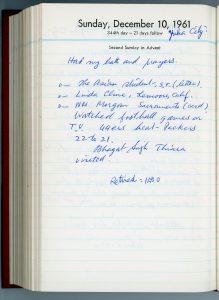 Sunday, December 10, 1961
344th day – 21 days follow
Yuba City
Second Sunday in Advent
Had my bath and prayers
The Asian Student, S.F. (letter).
Linda Clinic, Lemoore, Calif.
Mrs. Morgan Sacramento (card)
Watched football games on
T.V. 49ers beat Packers
22 to 21.
Bhagat Singh Thiara
visited
Retired = 11:00